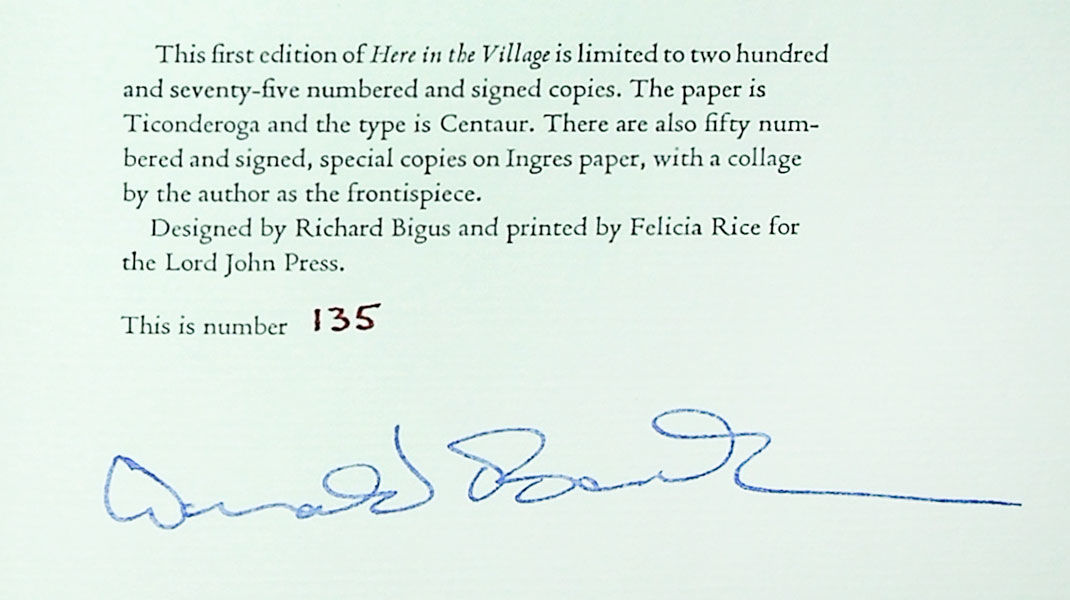 This first edition of Here in the Village is limited to two hundred
and seventy-five numbered and signed copies. The paper is
Ticonderoga and the type is Centaur. There are also fifty num-
bered and signed, special copies on Ingres paper, with a collage
by the author as the frontispiece.
Designed by Richard Bigus and printed by Felicia Rice for
the Lord John Press.
This is number 135
Donald